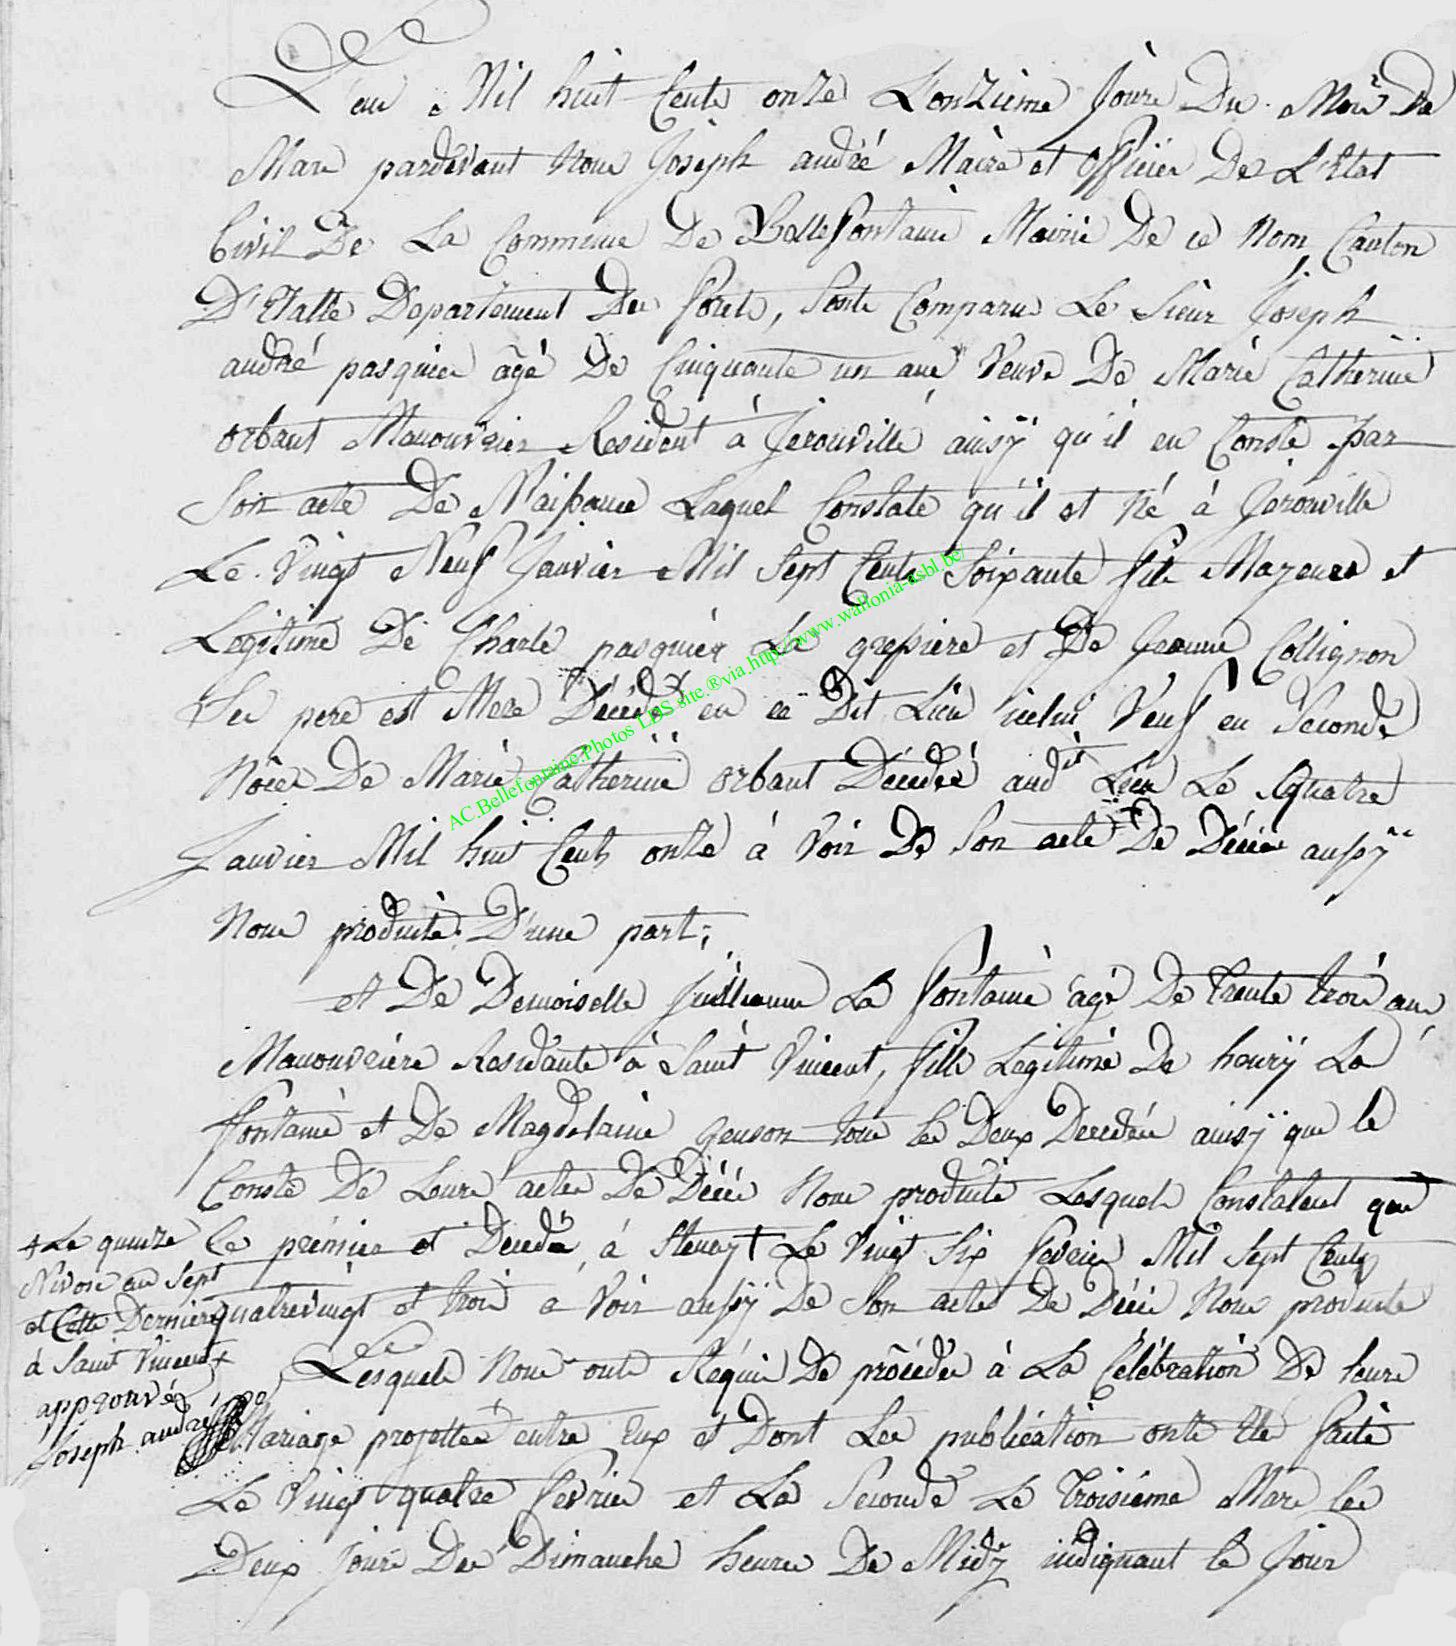 L'an Mil huit Cents onze L'onzieme Jours Du Mois De
Mars pardevant Nous Joseph andré Maire et officier De L'Etat
Civil De La Commune De Bellefontaine Mairie De ce Nom Canton
D'Etalle Departement Des forets, Sont Comparus Le Sieur Joseph
andré pasquier âgé De Cinquante un ans Veuve De Marie Catherine
orbant Manouvrier Resident à Jérouville ainsÿ qu'il en Conste par
Son acte De Naissance Laquel Constate qu'il et Né à Jérouville
Le Vingt Neuf Janvier Mil Sept Cents Soixante fils Mazeures et
Legitime De Charle pasquier La gressiere et De Jeanne Collignon
Ses pere est Mere Décédés en ce Dit Lieu icelui Veuf en Seconde
Noces De Marie Catherine orbant Décédé audit Lieu Le Quatre
Janvier Mil huit Cents onze à Voir De Son acte De Décès aussÿ
Nous produite. D'une part;
et De Demoiselle Juillienne La Fontaine agé De Trente trois ans
Manouvrière Residante à Saint Vincent, fille Legitime De henrÿ La
fontaine et De Magdelaine genson tous les Deux Decedés ainsÿ que le
Conste De Leurs actes De Décès Nous produits Lesquels Constatent que
le prémier et Décédé à Stenay + Le Vingt Six fevrier Mil Sept Cents
quatrevingt et trois a Voir aussÿ De Son acte De Décès Nous produite
+ Le quinze
Nivose an Sept
et Cette Derniere
à Saint Vincent +
approuvé
Joseph andré
Lesquels Nous ont Réquis De procéder à La Célébration De leurs
Mariage projettée entre Eux et Dont Les publication onts Eté faite
Le Vingt quatre fevrier et La Seconde Le Troisiéme Mars les
Deux Jours De Dimanche heures De Midÿ indiquant le Jour
AC.Bellefontaine.Photos LDS site.®via.http://www.wallonia-asbl.be/